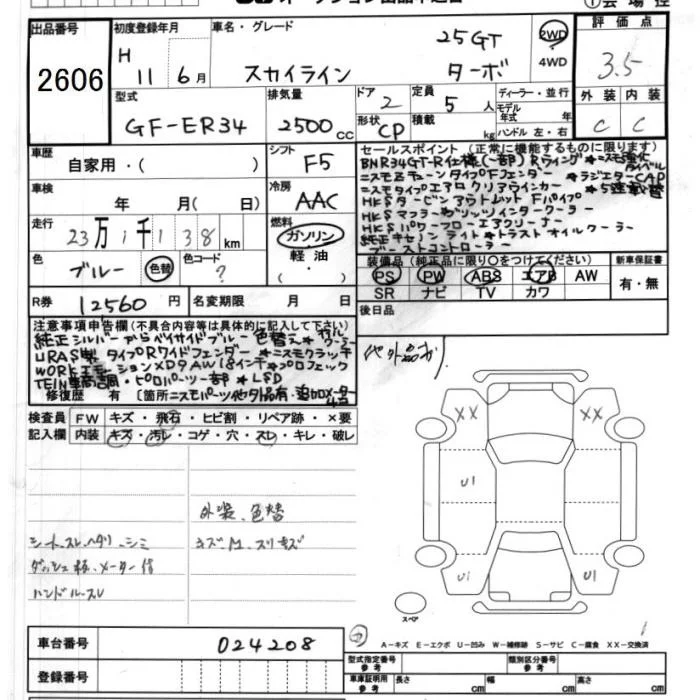 出品番号
2606
初度登録年月
H 11 6月
車名・グレード
スカイライン
25GT
ターボ
2WD
4WD
評価点
3.5
外装 内装
C C
型式
GF-ER34
排気量
2500cc
ドア 2
形状 CP
定員 5人
積載 kg
ディーラー・並行
モデル年式 年
ハンドル 左・右
車歴
自家用・( )
シフト
F5
車検
年 月( 日)
冷房
AAC
走行
23万1千138km
燃料
ガソリン
軽油
色
ブルー 色替
色コード
?
R券
12560円
名変期限 月 日
セールスポイント(正常に機能するものに限ります)
BNR34GT-R仕様(一部)Rウイング
ニスモZチューンタイプFフェンダー *ラジエターCAP
ニスモタイプエアロクリアウインカー
HKSタービンアウトレットFパイプ
HKSマフラー インタークーラー
HKSパワーフローエアクリーナー
純正キセノンライト*トラストオイルクーラー
ブーストコントローラー
装備品(純正品に限り○をつけてください)
PS PW ABS エアB AW
SR ナビ TV カワ
新車保証書
有・無
後日品
注意事項申告欄(不具合内容等は具体的に記入して下さい)
純正シルバーからベイサイドブルー色替え
URAS製タイプRワイドフェンダー *ニスモクラッチ
WORKエモーションXD9AW18インチ*プロフェック
TEIN車高調・ピロアッパー一部*LSD
修復歴 有 [箇所 ニスモパーツ他外品有・追加メーター
他外品有)
検査員記入欄
FW キズ・飛石・ヒビ割・リペア跡・×要
内装 キズ・汚レ・コゲ・穴・スレ・キレ・破レ
外装、色替
シートスレ、ヘタリ、シミ
キズ、凹、スリキズ
ダッシュ板、メーター
ハンドルスレ
XX XX
U1
U1 U1
スペア
車台番号
024208
登録番号
A-キズ E-エクボ U-凹み W-補修跡 S-サビ C-腐食 XX-交換済
型式指定番号 参考
類別区分番号 参考
車庫証明用 参考
長さ cm 幅 cm 高さ cm